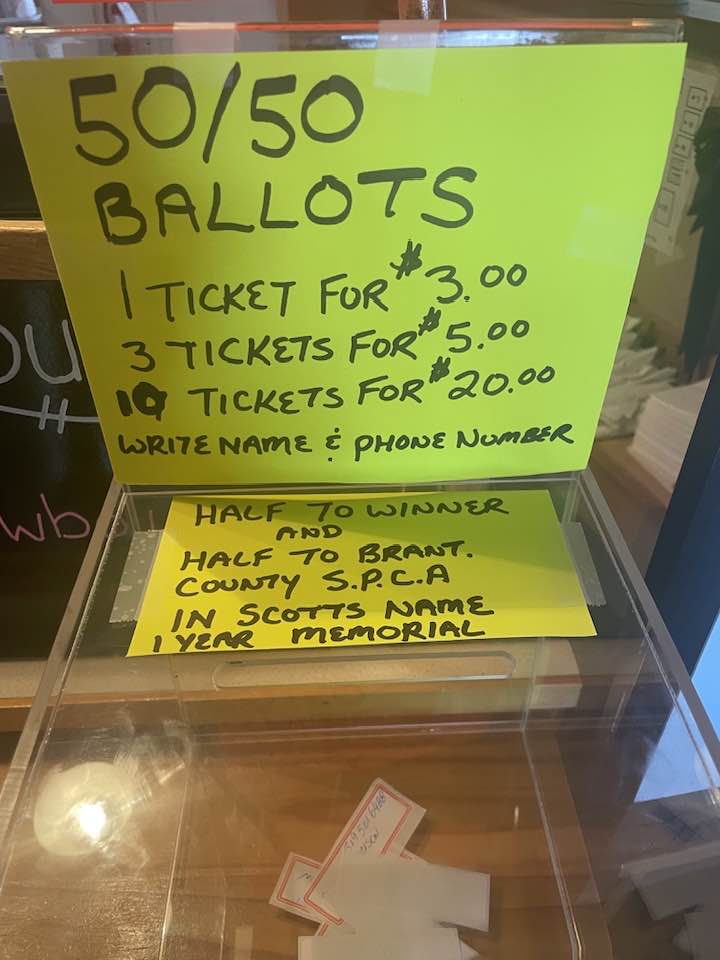 50/50
BALLOTS
1 TICKET FOR $3.00
3 TICKETS FOR $5.00
10 TICKETS FOR $20.00
WRITE NAME & PHONE NUMBER
HALF TO WINNER
AND
HALF TO BRANT.
COUNTY S.P.C.A
IN SCOTTS NAME
1 YEAR MEMORIAL